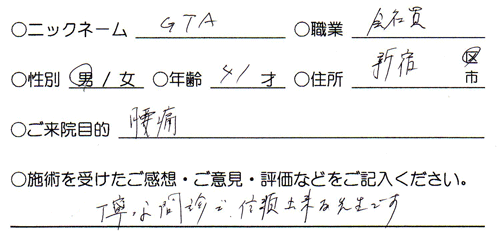 ○ニックネーム GTA ○職業 会社員
○性別 男 / 女 ○年齢 41 才 ○住所 新宿 区 市
○ご来院目的 腰痛
○施術を受けたご感想・ご意見・評価などをご記入ください。
丁寧な問診で、信頼出来る先生です